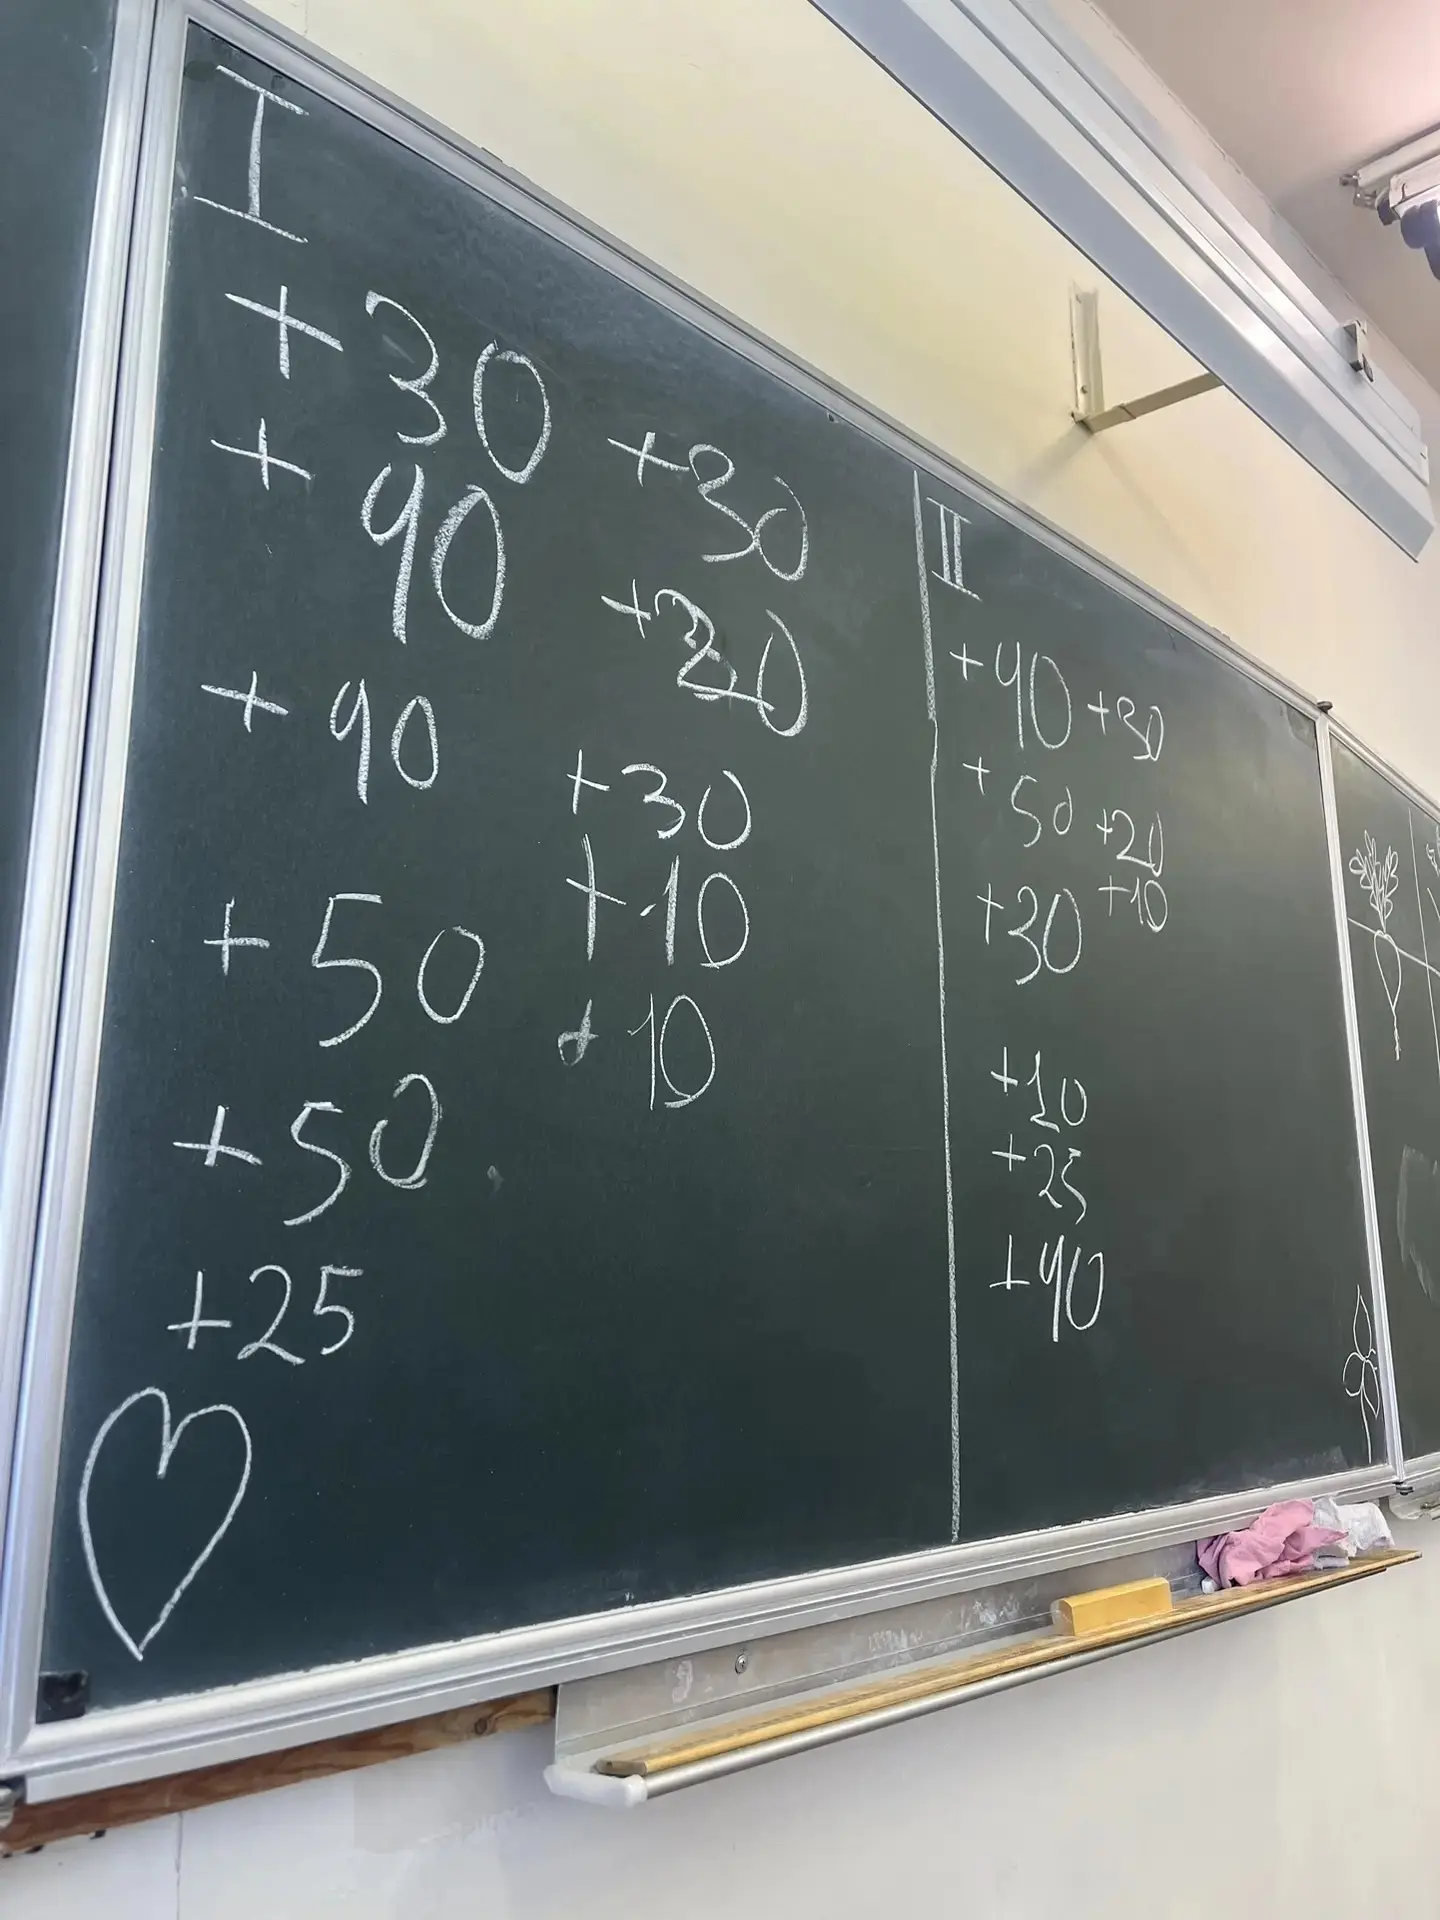 I
+30
+90
+90
+50
+50
+25
+30
+30
+10
+10
II
+90
+50
+30
+10
+25
+90
+30
+20
+10